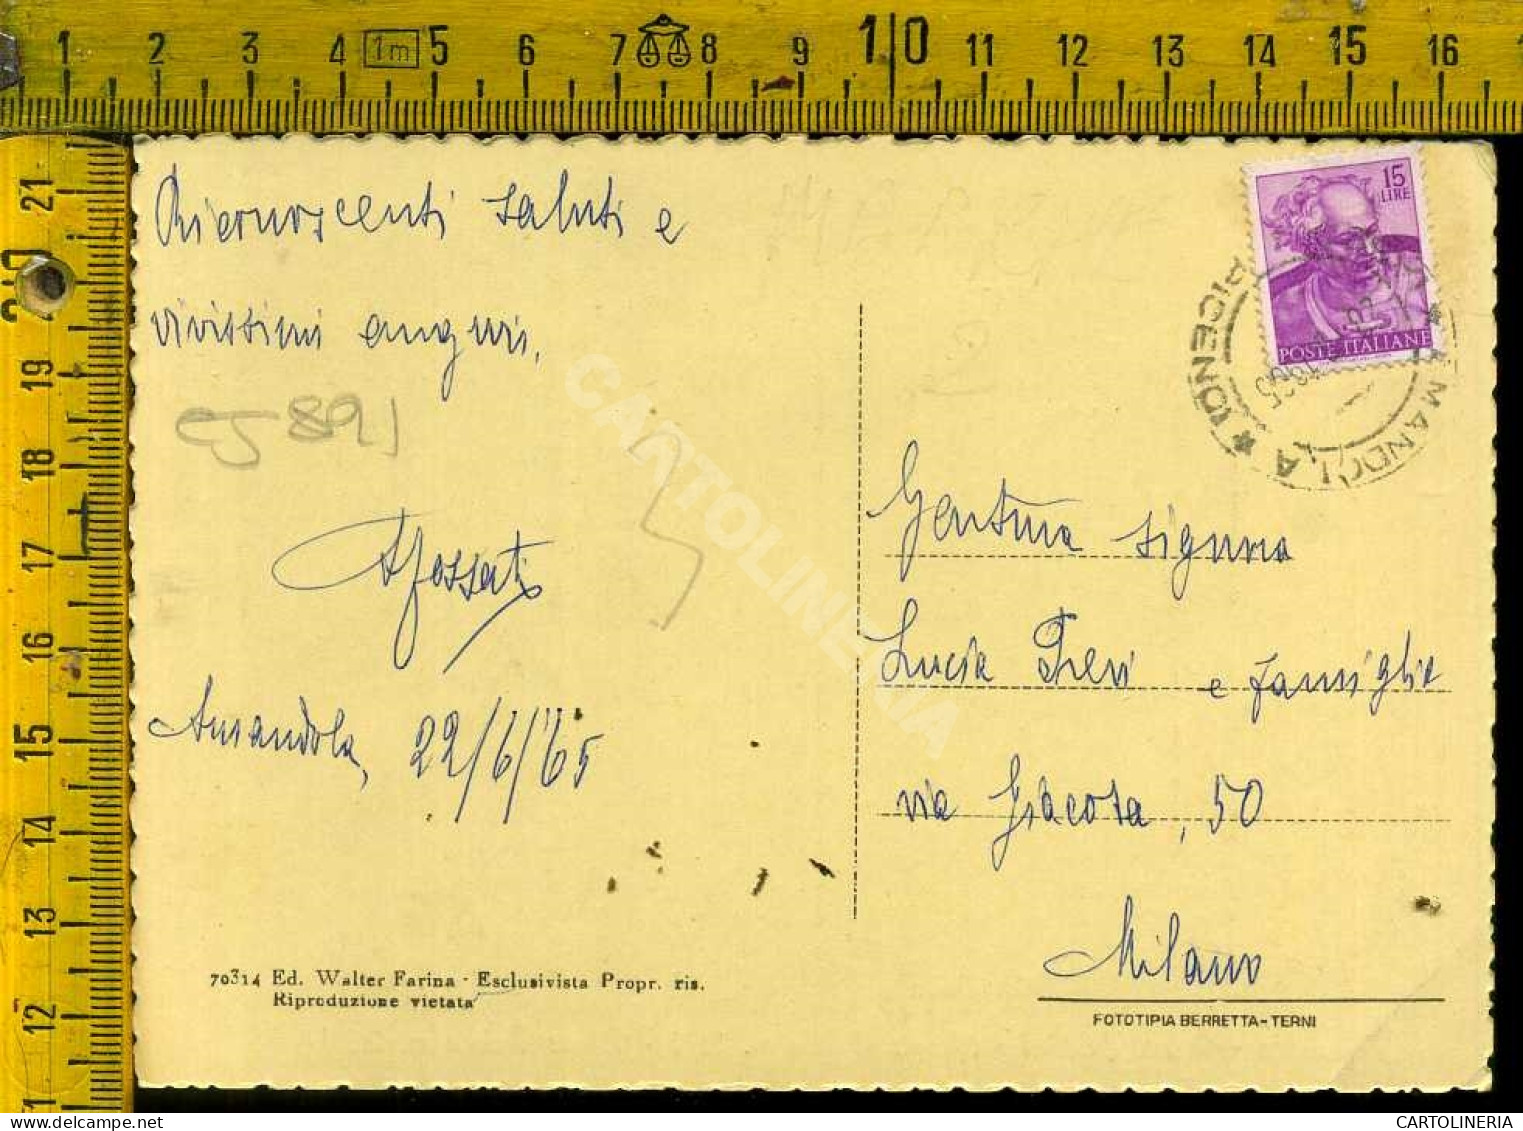 1 2 3 4 1m 5 6 7 8 9 10 11 12 13 14 15 16
21
20
19
18
17
16
15
14
13
12
Riconoscenti saluti e
vivissimi auguri.
CJ 891
A Fossati
Amandola, 22/6/65
70314 Ed. Walter Farina - Esclusivista Propr. ris.
Riproduzione vietata
15
LIRE
POSTE ITALIANE
AMANDOLA
Gentma signora
Lucia Trevi e famiglia
via Giacosa, 50
Milano
FOTOTIPIA BERRETTA - TERNI
CARTOLINERIA
CARTOLINERIA